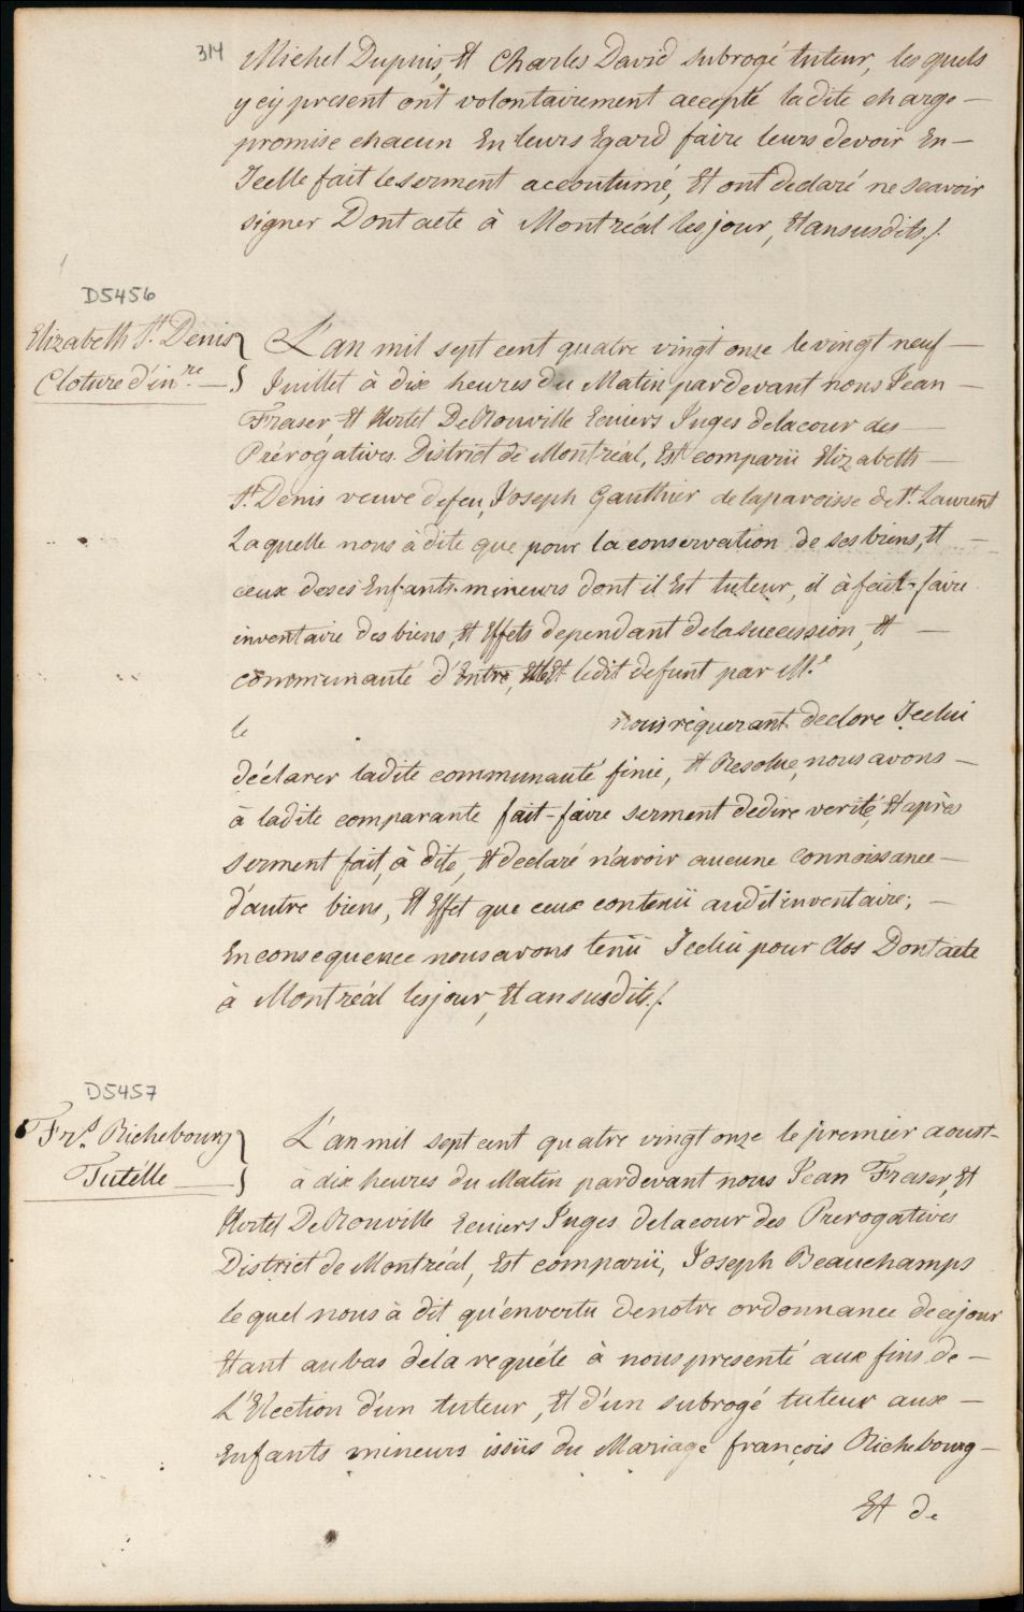 314
Michel Dupuis, Et Charles David subrogé tuteur, les quels
y cy present ont volontairement accepté ladite charge —
promise chacun En leurs Egard faire leurs devoir En —
Icelle fait le serment accoutumé, Et ont declaré ne scavoir
signer Dont acte à Montréal les jour, Et an susdits ./.
D5456
Elizabeth St. Denis
Cloture d'in.re —
L'an mil sept cent quatre vingt onze le vingt neuf —
Juillet à dix heures du Matin pardevant nous Jean —
Fraser Et Hertel DeRouville Ecuiers Juges dela cour des —
Prérogatives. District de Montréal, Est comparüe Elizabeth —
St. Denis veuve defeu, Joseph Gauthier de la paroisse de St. Laurent
Laquelle nous à dite que pour la conservation de ses biens, Et —
ceux deses Enfants mineurs dont il Est tuteur, il à fait-faire
inventaire des biens, Et Effets dependant dela succession, Et —
communauté d'Entre, Elle Et ledit defunt par Me.
le nous réquerant declore Icelui
déclarer ladite communauté finie, Et Resolue, nous avons —
à ladite comparante fait-faire serment dedire verité, Et après
serment fait, à dite, Et declaré n'avoir aucune connoissance —
d'autre biens, Et Effet que ceux contenü audit inventaire; —
En consequence nous avons tenü Icelui pour Clos Dont acte
à Montréal les jour, Et an susdits ./.
D5457
Frs. Richebourg
Tutélle —
L'an mil sept cent quatre vingt onze le premier aoust —
à dix heures du Matin pardevant nous Jean Fraser, Et
Hertel DeRouville Ecuiers Juges dela cour des Prerogatives
District de Montréal, Est comparü, Joseph Beauchamps
le quel nous à dit qu'envertu denotre ordonnance de ce jour
Etant au bas dela requéte à nous presenté aux fins de —
L'Election d'un tuteur, Et d'un subrogé tuteur aux —
Enfants mineurs issüs du Mariage françois Richebourg —
Et de